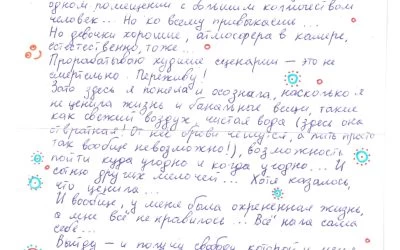 одном помещении с большим количеством
человек... Но ко всему привыкаешь...
Но девочки хорошие, атмосфера в камере,
естественно, тоже...
Прорабатываю худшие сценарии — это не
смертельно. Переживу!
Зато здесь я поняла и осознала, насколько я
не ценила жизнь и банальные вещи, такие
как свежий воздух, чистая вода (здесь она
отвратная! От неё брови чешутся, а пить просто
так вообще невозможно!), возможность
пойти куда угодно и когда угодно... И
сотню других мелочей... Хотя казалось,
что ценила...
И вообще, у меня была охрененная жизнь,
а мне всё не нравилось... Всё на сама
себе...
Выйду — и пощлю свободу которой у меня